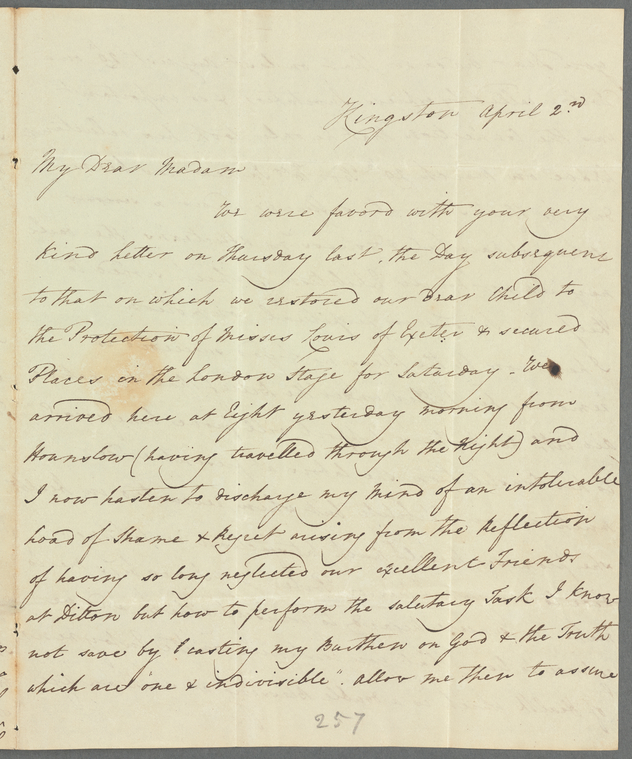 Kingston April 2nd
My Dear Madam
We were favord with your very
kind Letter on Thursday last, the Day subsequent
to that on which we restored our Dear Child to
the Protection of Misses Louis of Exeter & secured
Places in the London Stage for Saturday - We
arrived here at Eight yesterday morning from
Hounslow (having travelled through the Night) and
I now hasten to discharge my Mind of an intolerable
Load of Shame & Regret arising from the Reflection
of having so long neglected our excellent Friends
at Ditton but how to perform the salutary Task I know
not save by casting my Burthen on God & the Truth
which are "one & indivisible". allow me then to assure
257